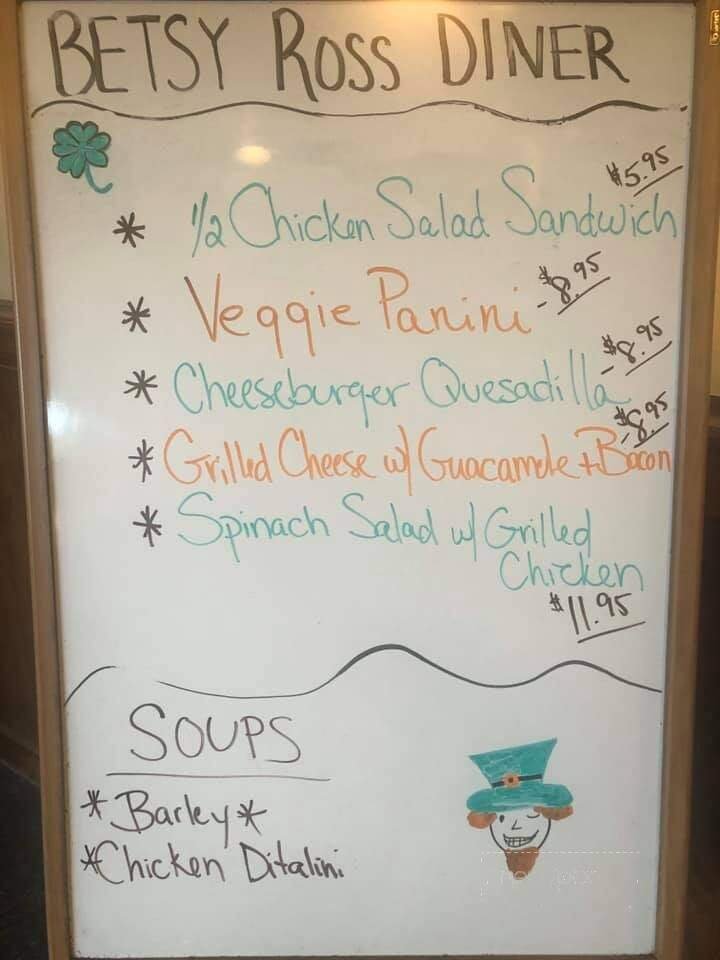 BETSY ROSS DINER
$5.95
* 1/2 Chicken Salad Sandwich
* Veggie Panini - $8.95
* Cheeseburger Quesadilla - $8.95
* Grilled Cheese w/ Guacamole + Bacon - $8.95
* Spinach Salad w/ Grilled
Chicken
$11.95
SOUPS
* Barley *
* Chicken Ditalini